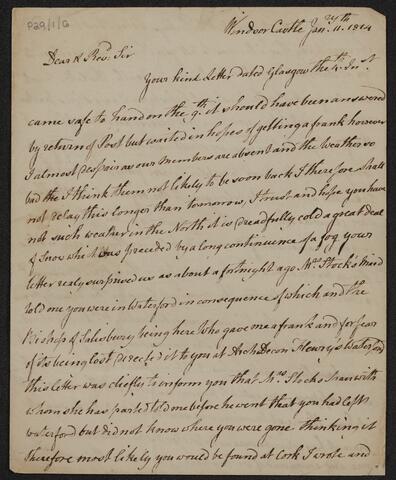 P29/1/6
Windsor Castle Jany. 11th. 1814
Dear & Revd. Sir
Your kind Letter dated Glasgow the 4th. Inst.
came safe to hand on the 9th. it should have been answered
by return of Post but waited in hopes of getting a frank however
I almost despair as our members are absent and the weather so
bad the I think them not likely to be soon back I therefore shall
not delay this longer than tomorrow, I trust and hope you have
not such weather in the North it is dreadfully cold a great deal
of Snow which was preceded by a long continuence of a fog your
letter realy surprised us as about a fortnight ago Mrs. Stock's friend
told me you were in Waterford in consequence of which and the
Bishop of Salisbury being here who gave me a frank and for fear
of its being lost directed it to you at Arch Decon Flewry's Waterford
this letter was chiefly to inform you that Mrs. Stocks Man with
whom she has parted told me before he went that you had left
waterford but did not know where you were gone thinking it
therefore most likely you would be found at Cork I wrote and